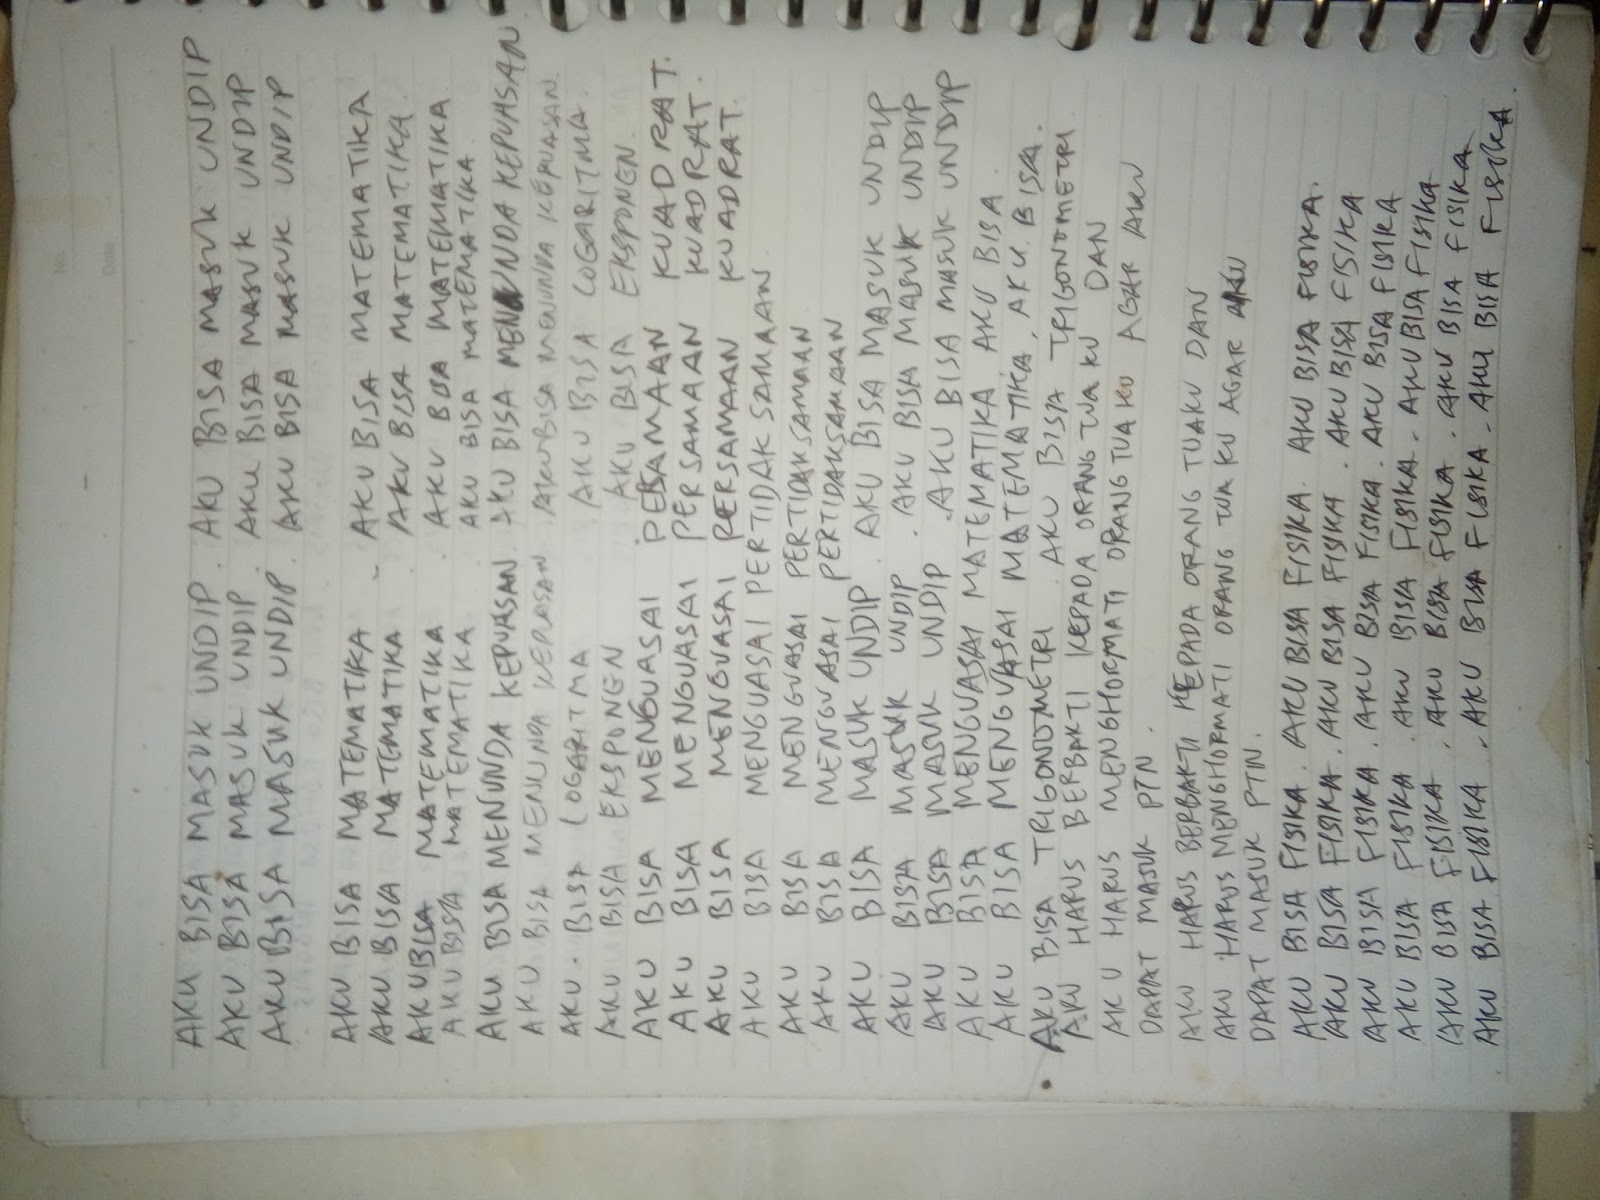 No.
Date
AKU BISA MASUK UNDIP. AKU BISA MASUK UNDIP
AKU BISA MASUK UNDIP. AKU BISA MASUK UNDIP
AKU BISA MASUK UNDIP. AKU BISA MASUK UNDIP
AKU BISA MATEMATIKA AKU BISA MATEMATIKA
AKU BISA MATEMATIKA AKU BISA MATEMATIKA.
AKU BISA MATEMATIKA . AKU BISA MATEMATIKA
AKU BISA MATEMATIKA AKU BISA MATEMATIKA.
AKU BISA MENUNDA KEPUASAN. AKU BISA MENUNDA KEPUASAN
AKU BISA MENUNA KEPUASAN. AKU BISA MENUNDA KEPUASAN.
AKU. BISA LOGARITMA . AKU BISA LOGARITMA.
AKU BISA EKSPONEN AKU BISA EKSPONEN.
AKU BISA MENGUASAI PERSAMAAN KUADRAT.
AKU BISA MENGUASAI PERSAMAAN KUADRAT.
AKU BISA MENGUASAI PERSAMAAN KUADRAT.
AKU BISA MENGUASAI PERTIDAKSAMAAN
AKU BISA MENGUASAI PERTIDAKSAMAAN
AKU BISA MENGUASAI PERTIDAKSAMAAN
AKU BISA MASUK UNDIP. AKU BISA MASUK UNDIP
AKU BISA MASUK UNDIP . AKU BISA MASUK UNDIP
AKU BISA MASUK UNDIP . AKU BISA MASUK UNDIP
AKU BISA MENGUASAI MATEMATIKA AKU BISA
AKU BISA MENGUASAI MATEMATIKA, AKU BISA.
AKU BISA TRIGONOMETRI . AKU BISA TRIGONOMETRI.
AKU HARUS BERBAKTI KEPADA ORANG TUA KU DAN
AKU HARUS MENGHORMATI ORANG TUA KU AGAR AKU
DAPAT MASUK PTN.
AKU HARUS BERBAKTI KEPADA ORANG TUAKU DAN
AKU HARUS MENGHORMATI ORANG TUA KU AGAR AKU
DAPAT MASUK PTIN.
AKU BISA FISIKA. AKU BISA FISIKA. AKU BISA FISIKA.
AKU BISA FISIKA. AKU BISA FISIKA . AKU BISA FISIKA
AKU BISA FISIKA. AKU BISA FISIKA. AKU BISA FISIKA
AKU BISA FISIKA . AKU BISA FISIKA. AKU BISA FISIKA
AKU BISA FISIKA . AKU BISA FISIKA . AKU BISA FISIKA
AKU BISA FISIKA . AKU BISA FISIKA. AKU BISA FISIKA.